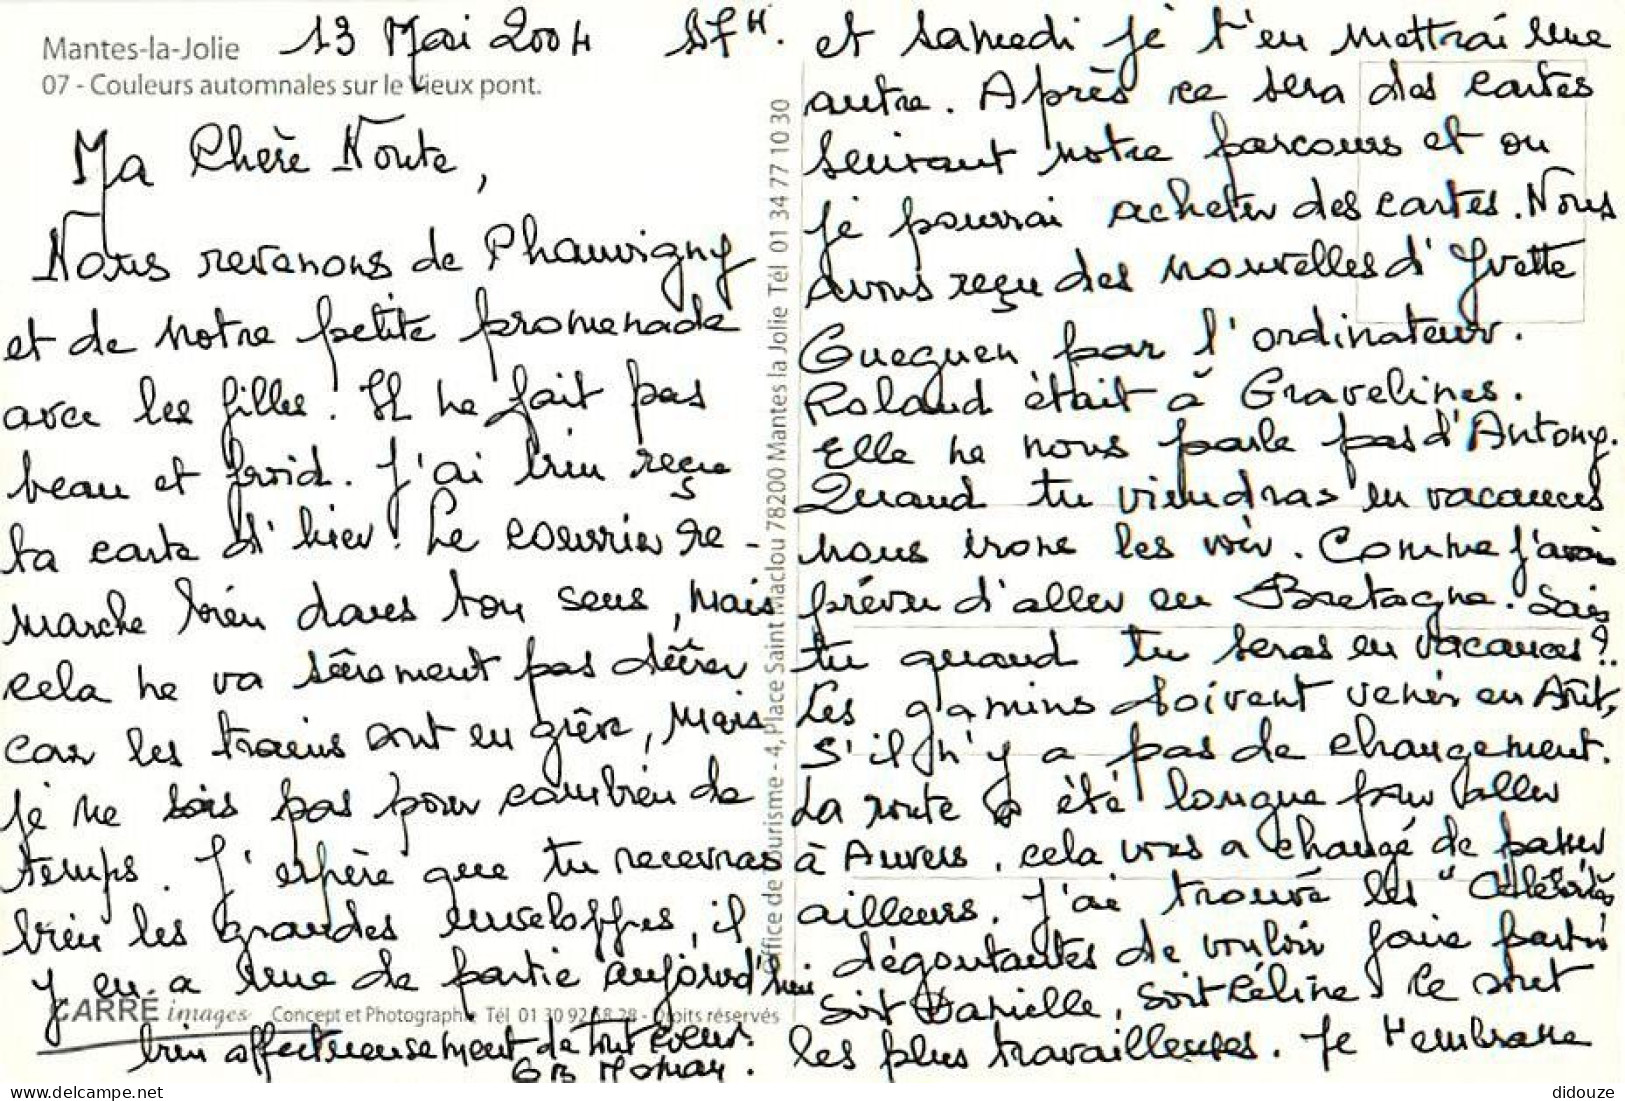 Mantes-la-Jolie
07 - Couleurs automnales sur le Vieux pont.
13 Mai 2004 17H.
Ma Chère Noute,
Nous revenons de Chauvigny
et de notre petite promenade
avec les filles. Il ne fait pas
beau et froid. J'ai bien reçu
ta carte d'hier. Le courrier re-
marche bien dans ton sens, mais
cela ne va sûrement pas durer
car les trains sont en grève, mais
je ne sais pas pour combien de
temps. J'espère que tu recevras
bien les grandes enveloppes, il
y en a une de partie aujourd'hui
et samedi je t'en mettrai une
autre. Après ce sera des cartes
suivant notre parcours et ou
je pourrai acheter des cartes. Nous
avons reçu des nouvelles d'Yvette
Gueguen par l'ordinateur.
Roland était à Gravelines.
Elle ne nous parle pas d'Antony.
Quand tu viendras en vacances
nous irons les voir. Comme j'avais
prévu d'aller en Bretagne. Sais
tu quand tu seras en vacances?
Les gamins doivent venir en Août,
s'il n'y a pas de changement.
La route a été longue pour aller
à Anvers, cela vous a changé de passer
ailleurs. J'ai trouvé les "Célébrités"
dégoutantes de vouloir faire partir
soit Danielle, soit Céline. Ce sont
les plus travailleuses. Je t'embrasse
bien affectueusement de tout coeur.
GB Maman.
Office de Tourisme - 4, Place Saint Maclou 78200 Mantes la Jolie Tél 01 34 77 10 30
CARRÉ images Concept et Photographie Tél 01 30 92 58 28 - Droits réservés
didouze